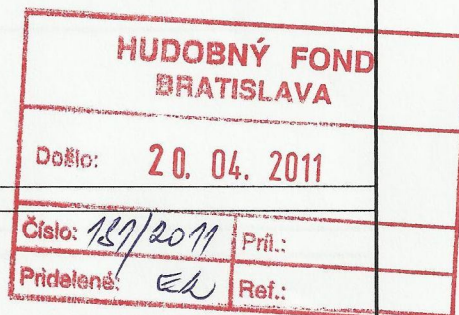 HUDOBNÝ FOND
BRATISLAVA
Došlo: 20. 04. 2011
Číslo: 131/2011 Príl.:
Pridelené: Ref.: